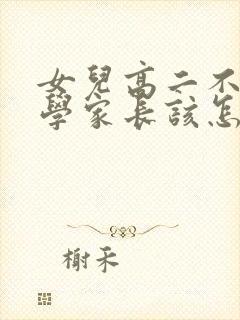 女兒高二不
學家長該怎
榭禾